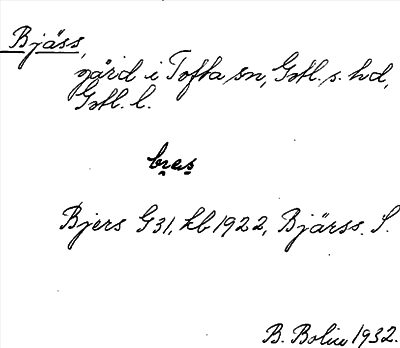 Bjäss,
gård i Tofta sn, Gotl. s. hd,
Gotl. l.
bres
Bjers G 31, kb 1922, Bjärss. S.
B. Bolin 1932.